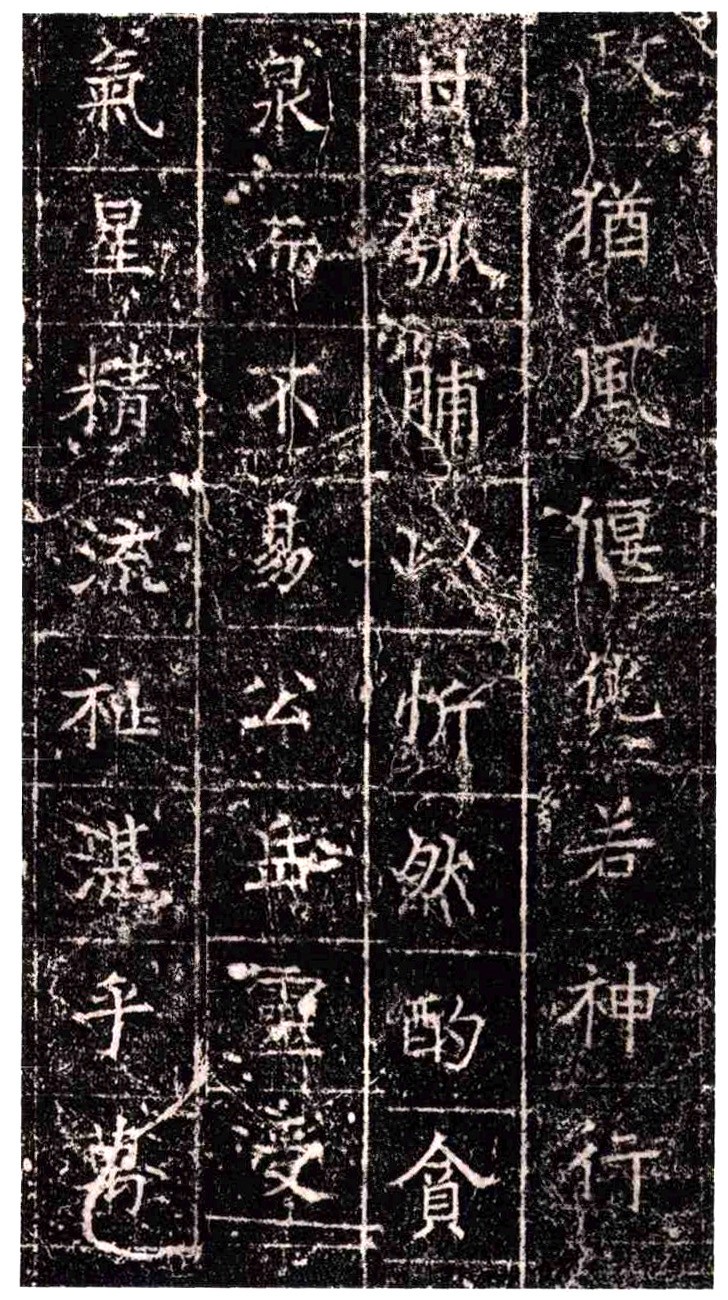 政猶風偃化若神行
甘瓠脯以忻然酌貪
泉而不易公岳靈受
氣星精流祉湛乎萬